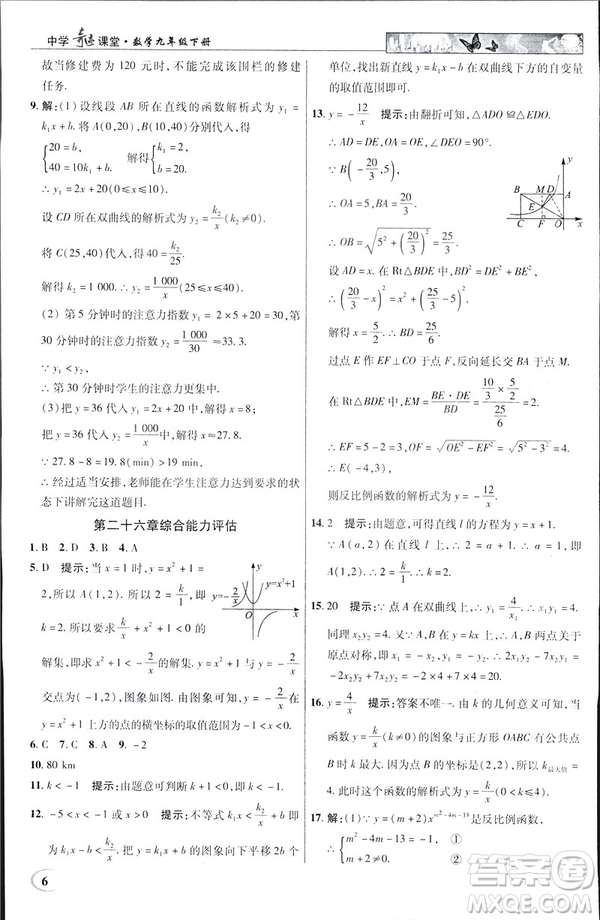 中学奇迹课堂·数学九年级下册
故当修建费为 120 元时，不能完成该围栏的修建
任务.
9. 解：(1) 设线段 AB 所在直线的函数解析式为 y₁
= k₁x + b. 将 A(0,20)，B(10,40) 分别代入，得
{20 = b, 40 = 10k₁ + b, 解得 {k₁ = 2, b = 20.
∴ y₁ = 2x + 20.
设 CD 所在双曲线的解析式为 y₂ = k₂/x.
将 C(25,40) 代入，得 40 = k₂/25.
解得：k₂ = 1 000. ∴ y₂ = 1 000/x (25≤x≤40).
(2) 第 5 分钟时的注意力 y₁ = 2×5+20=30.
第 30 分钟时的注意力 y₂ = 1 000/30 ≈33.3.
∴ 第 30 分钟时学生的注意力更集中.
(3) 把 y = 36 代入 y₁ = 2x + 20，得 x = 8.
把 y = 36 代入 y₂ = 1 000/x，得 x≈27.8.
∵ 27.8 - 8 = 19.8(分钟) > 19 分钟.
∴ 经过适当安排，老师能在学生注意力达到所需状
态下讲解完这道题目.
第二十六章综合能力评估
1. B 2. D 3. B 4. A
5. D 提示：当 x = 1 时，y = x² + 1
= 2. 所以 A(1,2) 在 y = k/x 上. 得
k = 2. 所以要求 2/x + x² + 1 < 0
的解集，即求 x² + 1 < - 2/x 的解集. y = x² + 1 与 y = - 2/x
交点为 (-1,2)，图象如图. 由图象知，y = - 2/x 在
y = x² + 1 上方的点的横坐标的取值范围是 -1 < x < 0.
6. C 7. C 8. A 9. -2
10. 80 km
11. k < -1 提示：由题意可判断 k + 1 < 0. ∴ k < -1.
12. -5 < x < -1 或 x > 0 提示：不等式 k₁x < k₂/x + b 即
为 k₁x - b < k₂/x，y = k₁x + b 的图象向下平移 2b 个
6
单位，成为 y = k₁x - b. 找出新直线 y = k₁x - b 在双曲线下方的自变量
的取值范围即可.
13. y = - 12/x 提示：由翻折可知，△ADO ≌ △EDO.
∴ AD = DE，OA = OE，∠OED = ∠OAD = 90°.
∵ B(- 20/3, 5)，
∴ OA = 5，AB = 20/3.
∴ OB = √(5² + (20/3)²) = 25/3.
设 AD = x. 在 Rt△BDE 中，BD² = BE² + DE².
∴ (20/3 - x)² = x² + (25/3 - 5)².
解得 x = 5/2. ∴ DE = 5/2. ∴ BD = 25/6.
过点 E 作 EF⊥x 轴于点 F，反向延长交 BA 于点 M.
在 Rt△BDE 中，EM = BE·DE/BD = (10/3 × 5/2)/(25/6) = 2.
∴ EF = 5 - 2 = 3. ∴ OF = √(OE² - EF²) = √(5² - 3²) = 4.
∴ E(-4,3).
则反比例函数的解析式为 y = - 12/x.
14. 2 提示：由题意，可得直线 l 的方程为 y = x + 1.
∵ A(a,2) 在直线 l 上，∴ 2 = a + 1. ∴ a = 1. ∴
A(1,2). ∴ 2 = k/1. ∴ k = 2.
15. 20 提示：∵ 点 A 在双曲线上，∴ y₁ = 4/x₁. ∴ x₁y₁ = 4.
同理 x₂y₂ = 4. ∵ 双曲线 y = 4/x 和直线 y = kx 都关于
原点对称，∴ x₁ = -x₂，y₁ = -y₂. ∴ 2x₁y₂ - 7x₂y₁ =
- 2x₂y₂ + 7x₂y₂ = -2×4 + 7×4 = 20.
16. y = 4/x 提示：答案不唯一. 由 k 的几何意义可知，当
反比例函数图象与正方形 OABC 有交点时
点 B 的坐标是 (2,2)，所以 k最大值 = 2×2 =
4. 故反比例函数的解析式可以为 y = 4/x.
17. 解：∵ 函数 y = (m + 2)x^(m²-4m-13) 是反比例函数，
∴ {m² - 4m - 13 = -1, ① m + 2 ≠ 0. ②